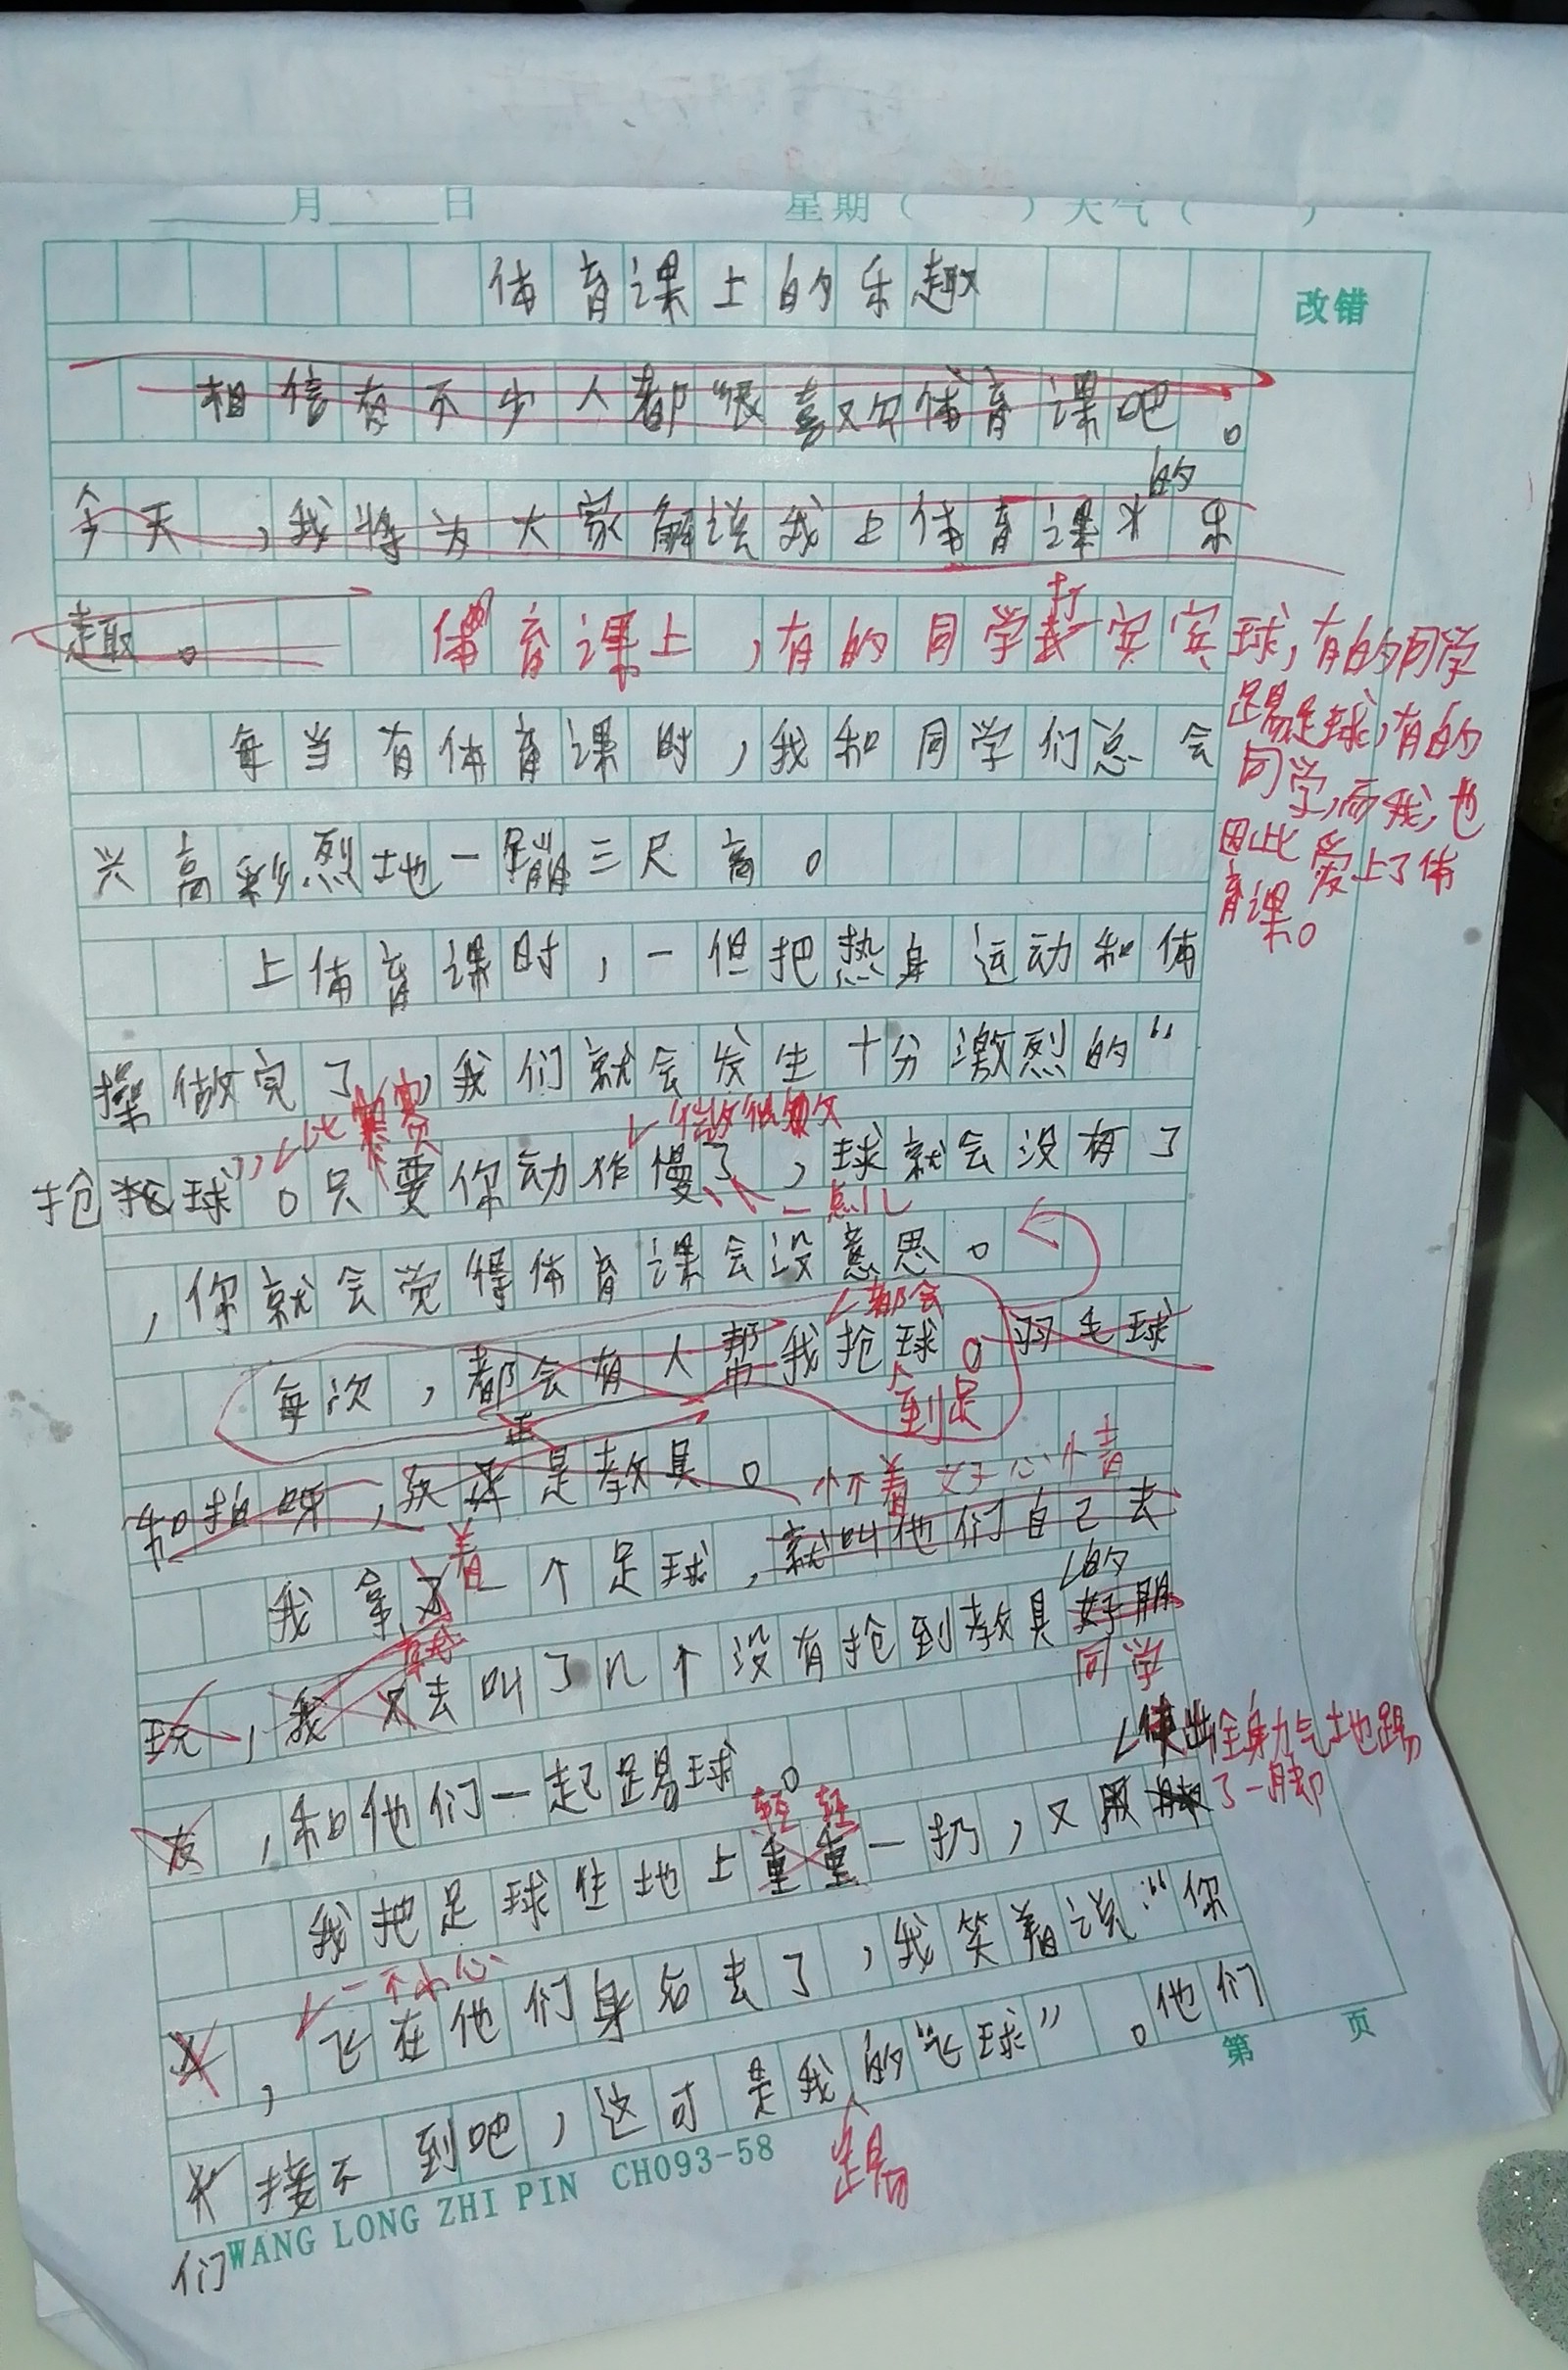 月 日 星期( )天气( )
体育课上的乐趣
改错
相信有不少人都很喜欢体育课吧。
的
今天,我将为大家解说我上体育课 乐
趣。 体育课上,有的同学打 乒乓球,有的同学
踢足球,有的
同学,而我,也
因此爱上了体
育课。
每当有体育课时,我和同学们总会
兴高彩烈地一蹦三尺高。
上体育课时,一但把热身运动和体
操做完了,我们就会发生十分激烈的“
比赛 做低头
抢 球”。只要你动作慢了,球就会没有了
一点儿
,你就会觉得体育课会没意思。
都会
每次,都会有人帮我抢球。羽毛球
到足
和拍呀, 是教具。
怀着好心情
着
我拿了一个足球,就叫他们自己去
的
就
玩,我又去叫了几个没有抢到教具好朋
同学
友,和他们一起踢球。
使出全身力气地踢
轻轻
了一脚
我把足球往地上重重一扔,又用脚
一不小心
,飞在他们身后去了,我笑着说:“你
接不到吧,这可是我的“飞球”。他们
踢
们
第 页
WANG LONG ZHI PIN CH093-58